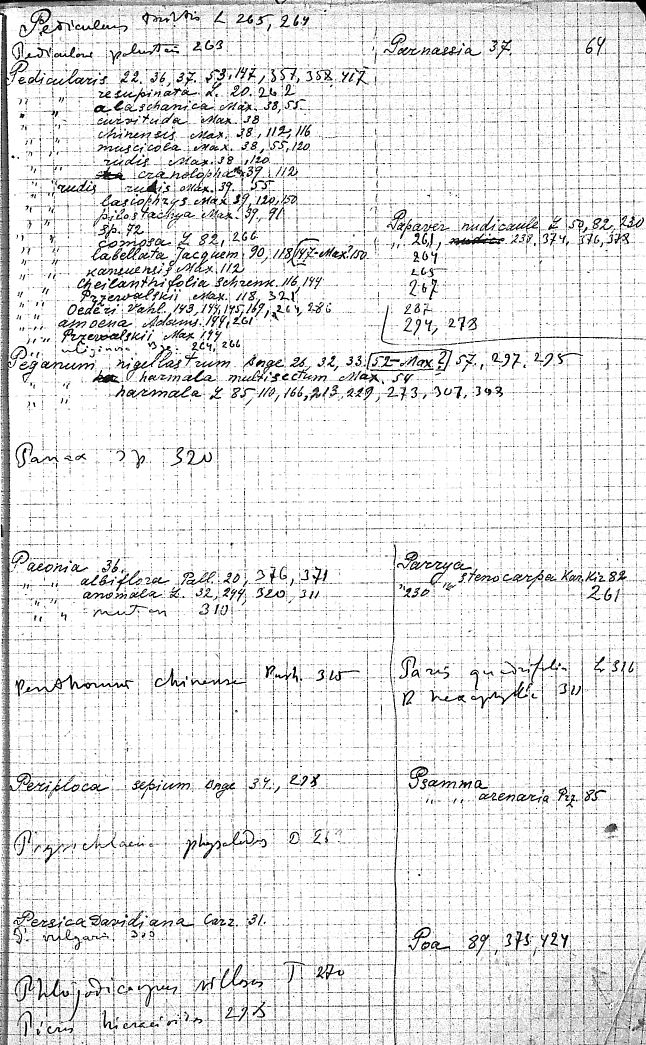 Pedicularis tristis L 265, 264
Pedicularis palustris 263
Pedicularis 22. 36, 37. 53, 147, 357, 358, 417
" " resupinata L. 20. 262
" " alaschanica Max. 38, 55
" " curvituda Max 38
" " chinensis Max. 38, 112, 116
" " muscicola Max. 38, 55, 120
" " rudis Max. 38, 120
" " cranolopha 39, 112
" rudis rudis Max. 39. 55
" " lasiophrys Max 39, 120, 150
" " pilostachya Max. 39, 91
" " sp. 72
" " comosa L 82, 266
" " labellata Jacquem. 90, 118 147-Max? 150
" " kansuensis Max. 112
" " cheilanthifolia Schrenk. 116, 144
" " Przewalskii Max. 118, 321
" " Oederi Vahl. 143, 144, 145, 169, 264, 286
" " amoena Adams. 144, 261
" " Przewalskii Max 144
" " uliginosa Bge. 264, 266
Peganum nigellastrum Bnge 26, 32, 33. 52-Max? 57, 297, 295
" " harmala multisectum Max. 54
" " harmala L 85, 110, 166, 213, 229, 273, 307, 303
Panax sp 320
Paeonia 36.
" " albiflora Pall. 20, 376, 371
" " anomala L. 32, 244, 320, 311
" " 310
Penthorum chinense Pursh. 315
Periploca sepium Bnge 34., 298
physaloides D
Persica Davidiana Carr. 31.
P. vulgaris 303
Phlojodicarpus villosus T 270
Picris hieracioides 295
Parnassia 37 64
Papaver nudicaule L 50, 82, 230
" 261, 238, 374, 376, 378
264
265
267
287
294, 278
Parrya
" " stenocarpa Kar. Kir 82
"230 261
Paris quadrifolia L 316
P. hexaphylla 311
Psamma
" " arenaria Prz. 85
Poa 89, 375, 424